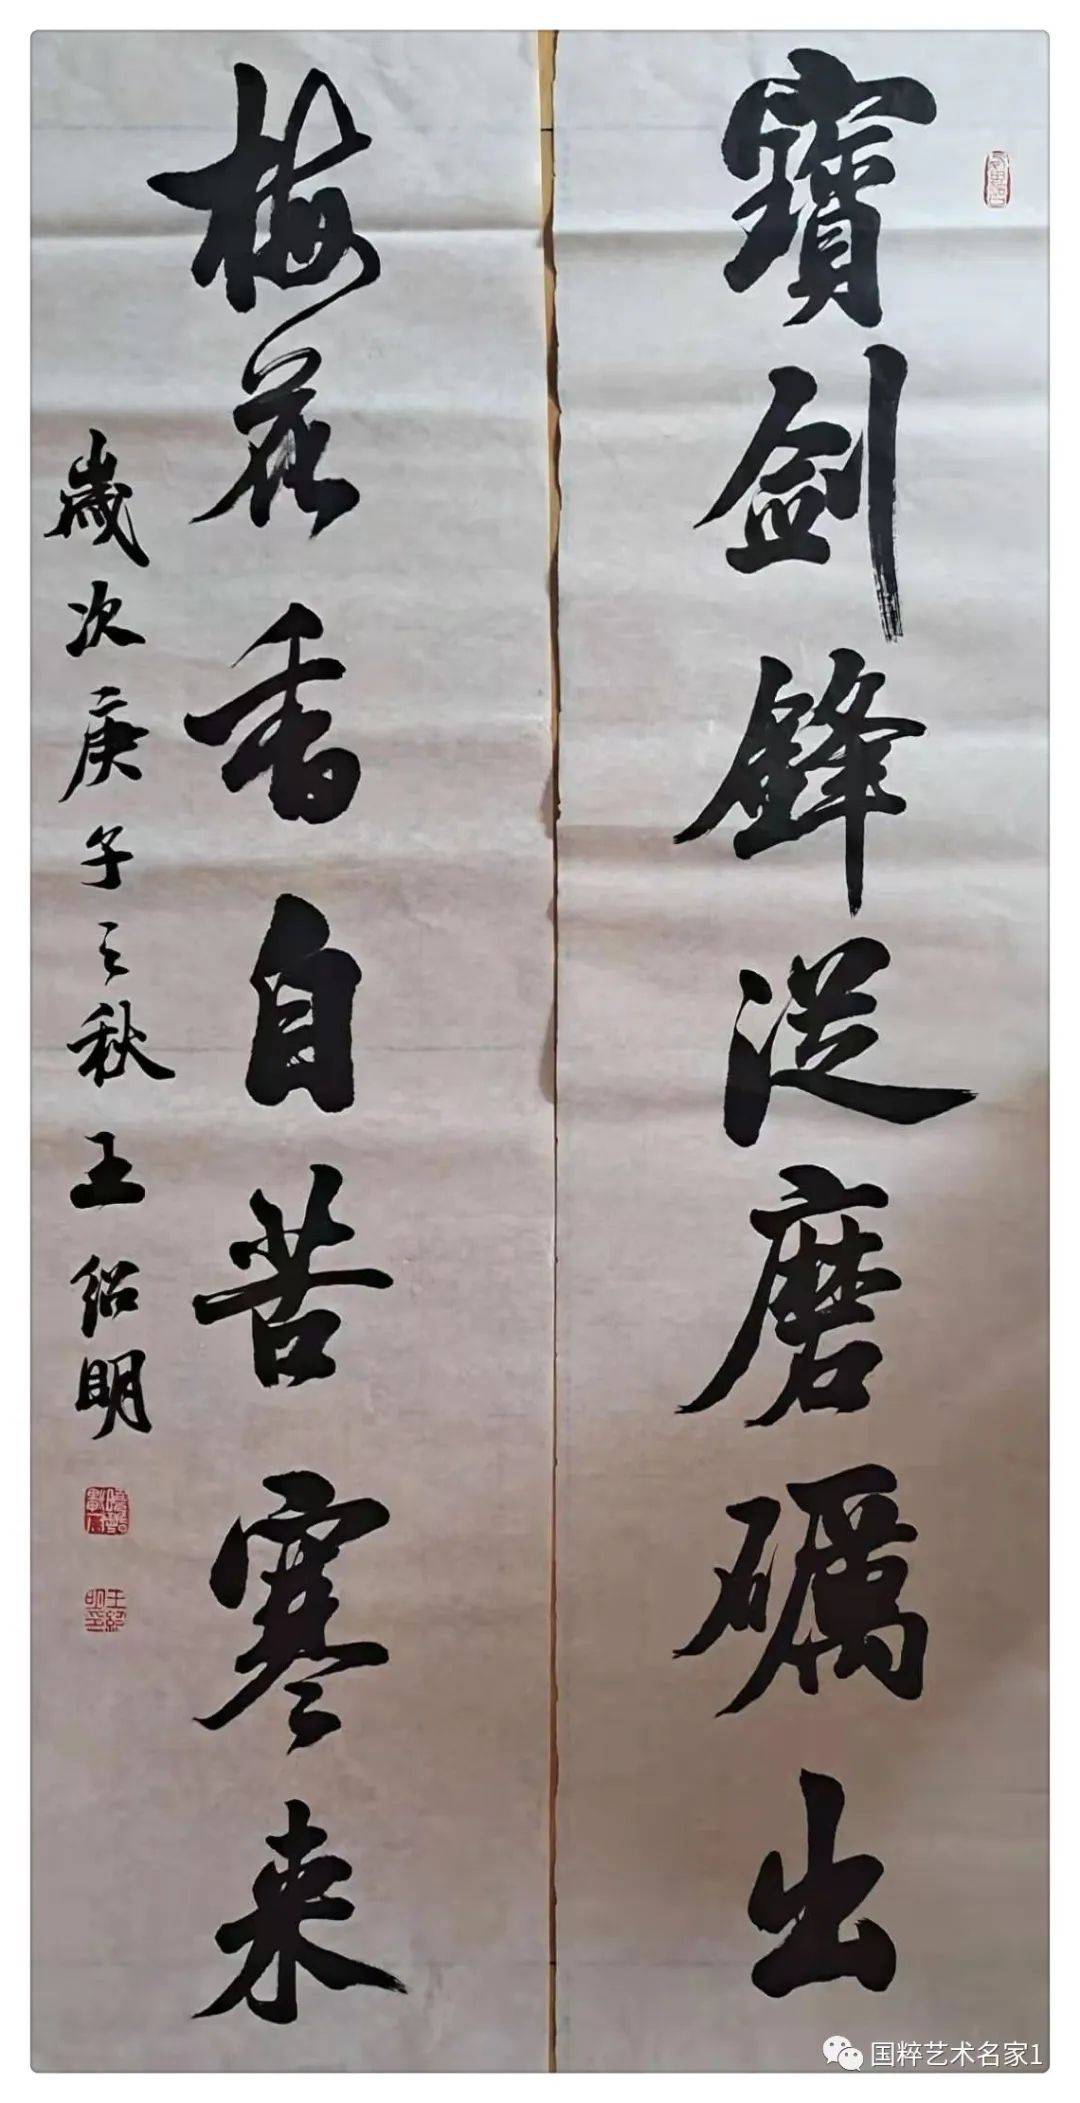 寶劍鋒從磨礪出
梅花香自苦寒來
歲次庚子之秋王紹明
王紹明印
国粹艺术名家1